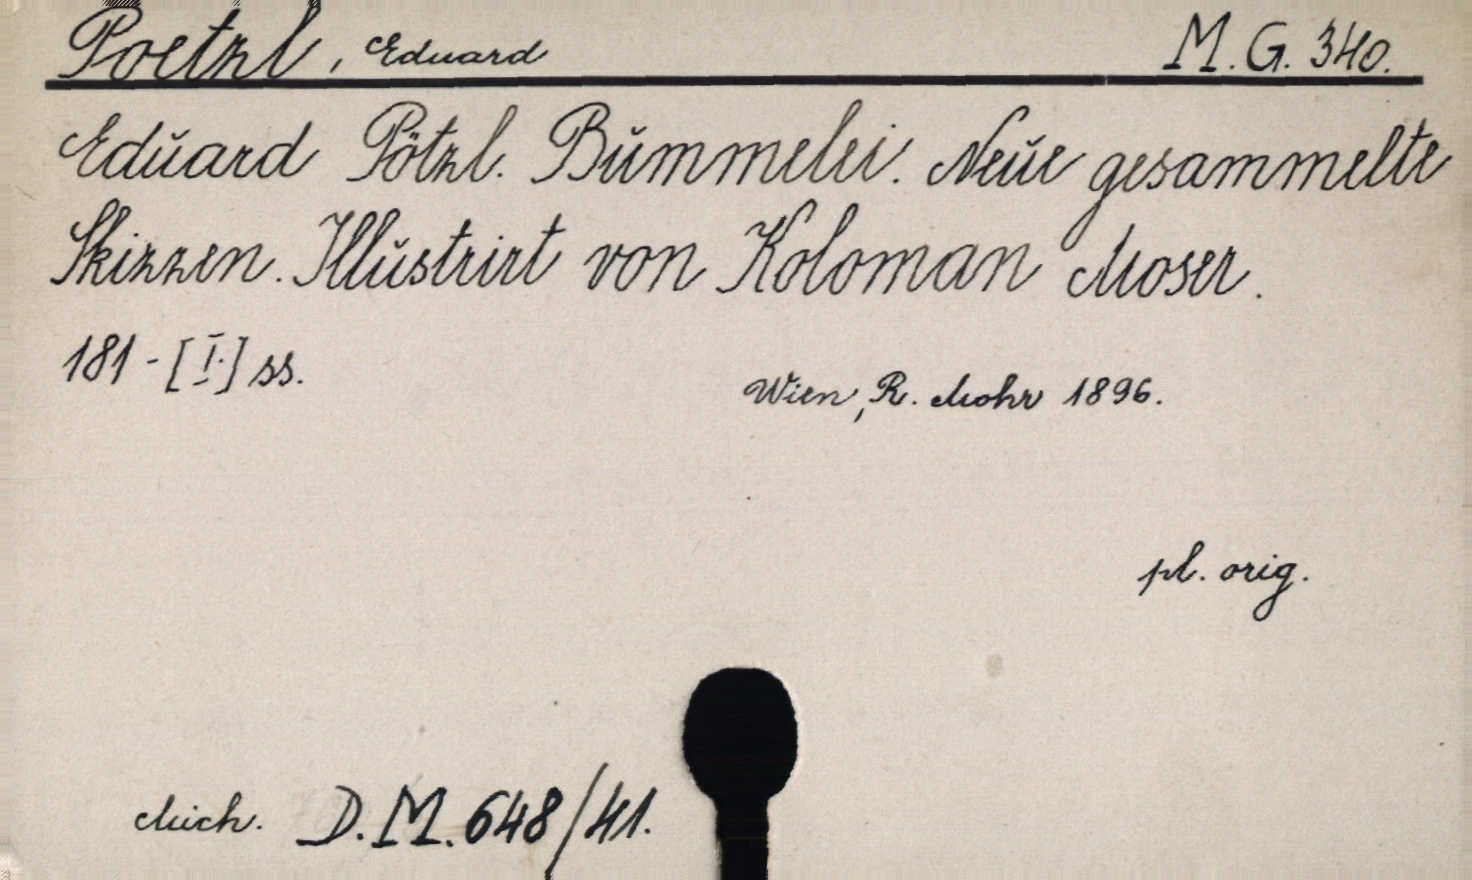 Poetzl, Eduard M. G. 340.
Eduard Pötzl. Bummelei. Neue gesammelte
Skizzen. Illustrirt von Koloman Moser.
181 - [I.] ss.
Wien, R. Mohr 1896.
pl. orig.
Mich. D. M. 648/41.